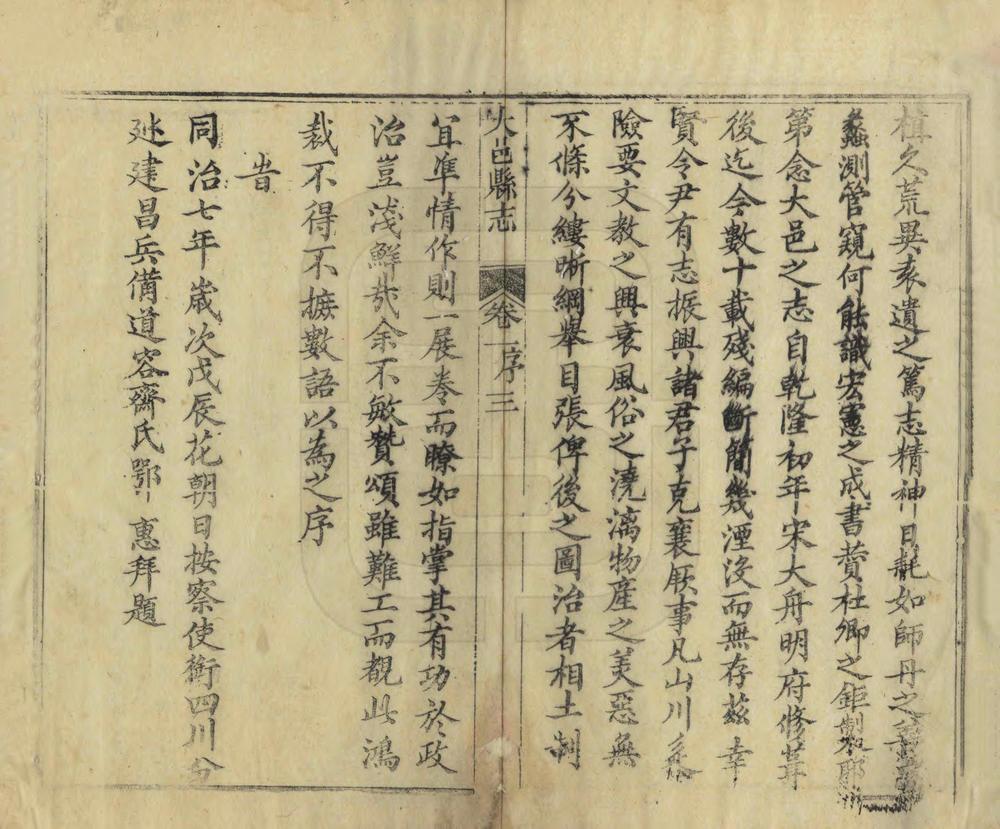 植久荒畢袁遺之篤志精神日耗如師丹之善
蠡測管窺何能識宏憲之成書贊杜卿之鉅製耶
第念大邑之志自乾隆初年宋大舟明府修葺
後迄今數十載殘編斷簡幾湮沒而無存茲幸
賢令尹有志振興諸君子克襄厥事凡山川
險要文教之興衰風俗之澆漓物產之美惡無
不條分縷晰綱舉目張俾後之圖治者相土制
大邑縣志 卷一序 三
宜準情作則一展卷而瞭如指掌其有功於政
治豈淺鮮哉余不敏贊頌雖難工而觀此鴻
裁不得不摭數語以為之序
旹
同治七年歲次戊辰花朝日按察使銜四川分
廵建昌兵備道容齋氏鄂惠拜題